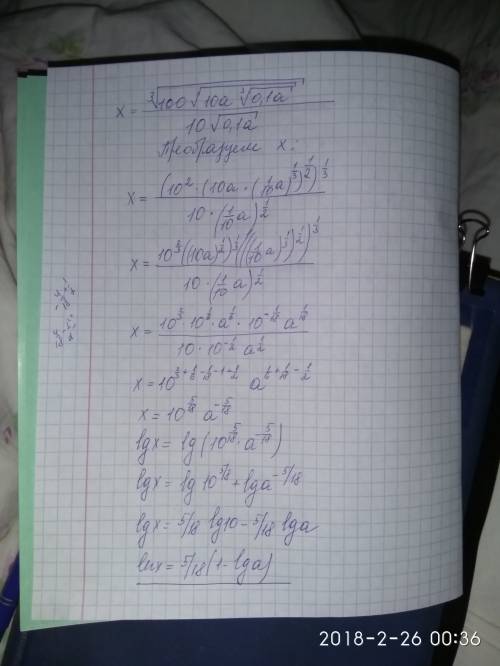 x = ∛(100√(10a ∛(0,1a))) / (10√(0,1a))
Преобразуем x:
x = (10² · (10a · (1/10 a)^(1/3))^(1/2))^(1/3) / (10 · (1/10 a)^(1/2))
x = 10^(2/3) ((10a)^(1/2))^(1/3) (((1/10 a)^(1/3))^(1/2))^(1/3) / (10 · (1/10 a)^(1/2))
x = 10^(2/3) · 10^(1/6) · a^(1/6) · 10^(-1/18) a^(1/18) / (10 · 10^(-1/2) a^(1/2))
x = 10^(2/3 + 1/6 - 1/18 - 1 + 1/2) a^(1/6 + 1/18 - 1/2)
x = 10^(5/18) a^(-5/18)
lgx = lg(10^(5/18) · a^(-5/18))
lgx = lg 10^(5/18) + lga^(-5/18)
lgx = 5/18 lg10 - 5/18 lga
lgx = 5/18 (1 - lga)
2018-2-26 00:36